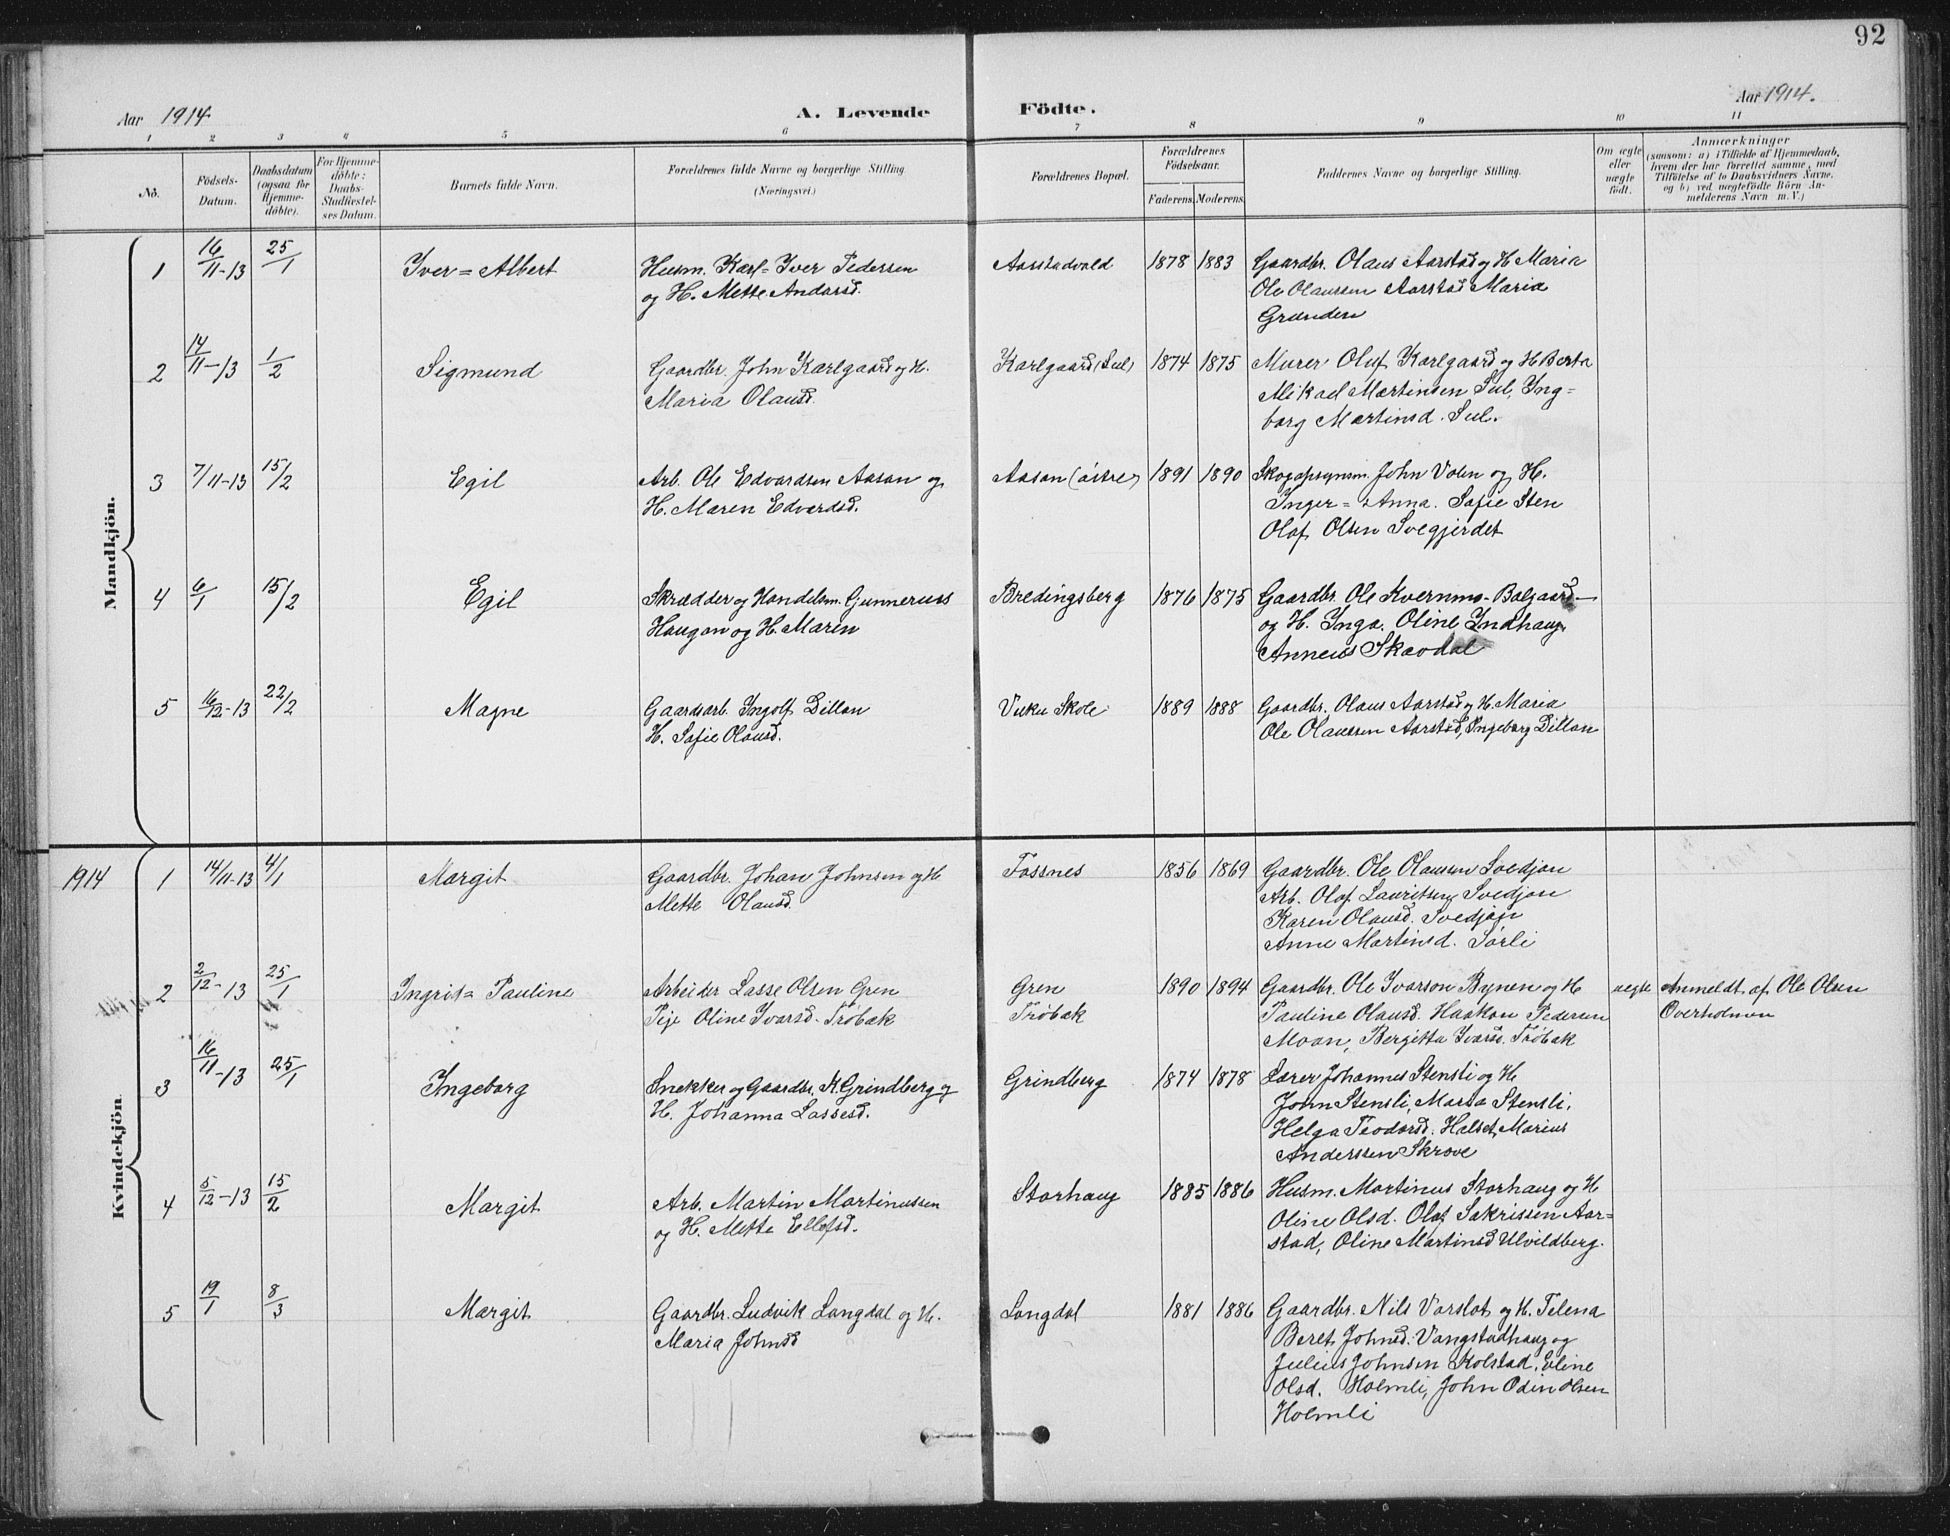 92
Aar 1914 A. Levende Födte. Aar 1914.
1 2 3 4 5 6 7 8 9 10 11
No.
Födsels-
Datum.
Daabsdatum
(ogsaa for
Hjemme-
döbte).
For Hjemme-
döbte:
Daabs-
Stadfæstel-
ses Datum.
Barnets fulde Navn.
Forældrenes fulde Navne og borgerlige Stilling
(Næringsvei.)
Forældrenes Bopæl.
Forældrenes
Födselsaar.
Faderens. Moderens.
Faddernes Navne og borgerlige Stilling.
Om ægte
eller
uægte
födt.
Anmærkninger
(saasom: a) i Tilfælde af Hjemmedaab,
hvem der har forrettet samme, med
Tilföielse af to Daabsvidners Navne,
og b) ved uægtefödte Börn An-
melderens Navn m. V.)
Mandkjön.
1 16/11-13 25/1 Iver=Albert Husm. Karl=Iver Pedersen Aarstadvald 1878 1883 Gaardbr. Olaus Aarstad og H. Maria
og H. Mette Andorsd. Ole Olausen Aarstad Maria
Grunden
2 14/11-13 1/2 Sigmund Gaardbr. John Karlgaard og H. Karlgaard (Sul) 1874 1875 Murer Oluf Karlgaard og H Berta
Maria Olausd. Mikael Martinsen Sul, Ing=
borg Martinsd. Sul.
3 7/11-13 15/2 Egil Arb. Ole Edvardsen Aasan og Aasan (östre) 1891 1890 Skogopsynsm. John Volen og H.
H. Maren Edvardsd. Inger=Anna. Sofie Sten
Olaf Olsen Svegjerdet
4 6/1 15/2 Egil Skrædder og Handelsm. Gunnerius Bredingsberg 1876 1875 Gaardbr. Ole Kvernmo-Balgaard
Haugan og H. Maren og H. Inga. Oline Indhaug
Anneus Skavdal
5 16/12-13 22/2 Magne Gaardsarb. Ingolf Dillan Vuku Skole 1889 1888 Gaardbr. Olaus Aarstad og H. Maria
H. Sofie Olausd. Ole Olaussen Aarstad, Ingeborg Dillan
Kvindekjön
1914 1 14/11-13 4/1 Margit Gaardbr. Johan Johnsen og H Fossnes 1856 1869 Gaardbr. Ole Olausen Svedjan
Mette Olausd. Arb. Olaf Lauritsen Svedjan
Karen Olausd. Svedjan
Anne Martinsd. Sörli
2 2/12-13 25/1 Ingrid=Pauline Arbeider Lasse Olsen Gren Gren 1890 1894 Gaardbr. Ole Ivarson Bynen og H uegte Anmeldt af Ole Olsen
Pije Oline Ivarsd. Tröbak Tröbak Pauline Olausd. Haakon Pedersen Overholmen
Moan, Bergitta Ivarsd. Tröbak
3 16/11-13 25/1 Ingeborg Snekker og Gaardbr. K. Grindberg og Grindberg 1874 1878 Lærer Johannes Stensli og H.
H. Johanna Lassesd. John Stensli, Maria Stensli,
Helga Teodorsd. Halset, Marius
Anderssen Skrove
4 5/12-13 15/2 Margit Arb. Martin Martinussen Storhaug 1885 1886 Husm. Martinus Storhaug og H
og H. Mette Ellefsd. Oline Olsd. Olaf Sakrissen Aar=
stad, Oline Martinsd Ulvildberg.
5 19/1 8/3 Margit Gaardbr. Ludvik Langdal og H. Langdal 1881 1886 Gaardbr. Nils Varslot og H. Telena
Maria Johnsd Beret Johnsd. Vangstadhaug og
Julius Johnsen Kolstad, Eline
Olsd. Holmli, John Odin Olsen
Holmli